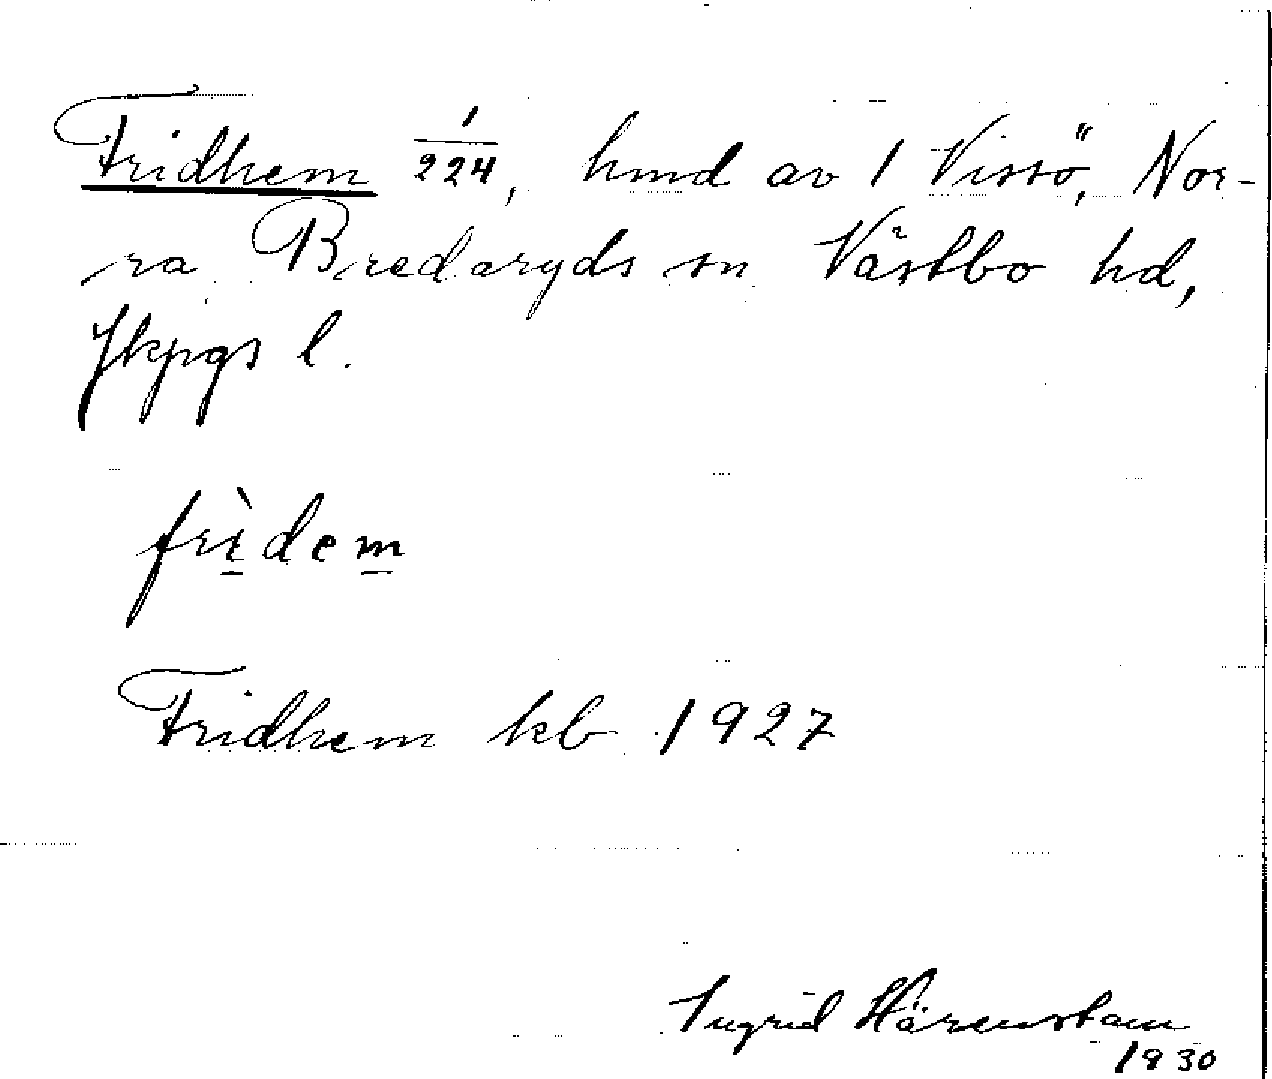 Fridhem 1/224, hmd av 1 Vissö, Nor-
ra Bredaryds sn Västbo hd,
Jkpgs l.
frìdem
Fridhem kb 1927
Ingrid Härenstam
1930